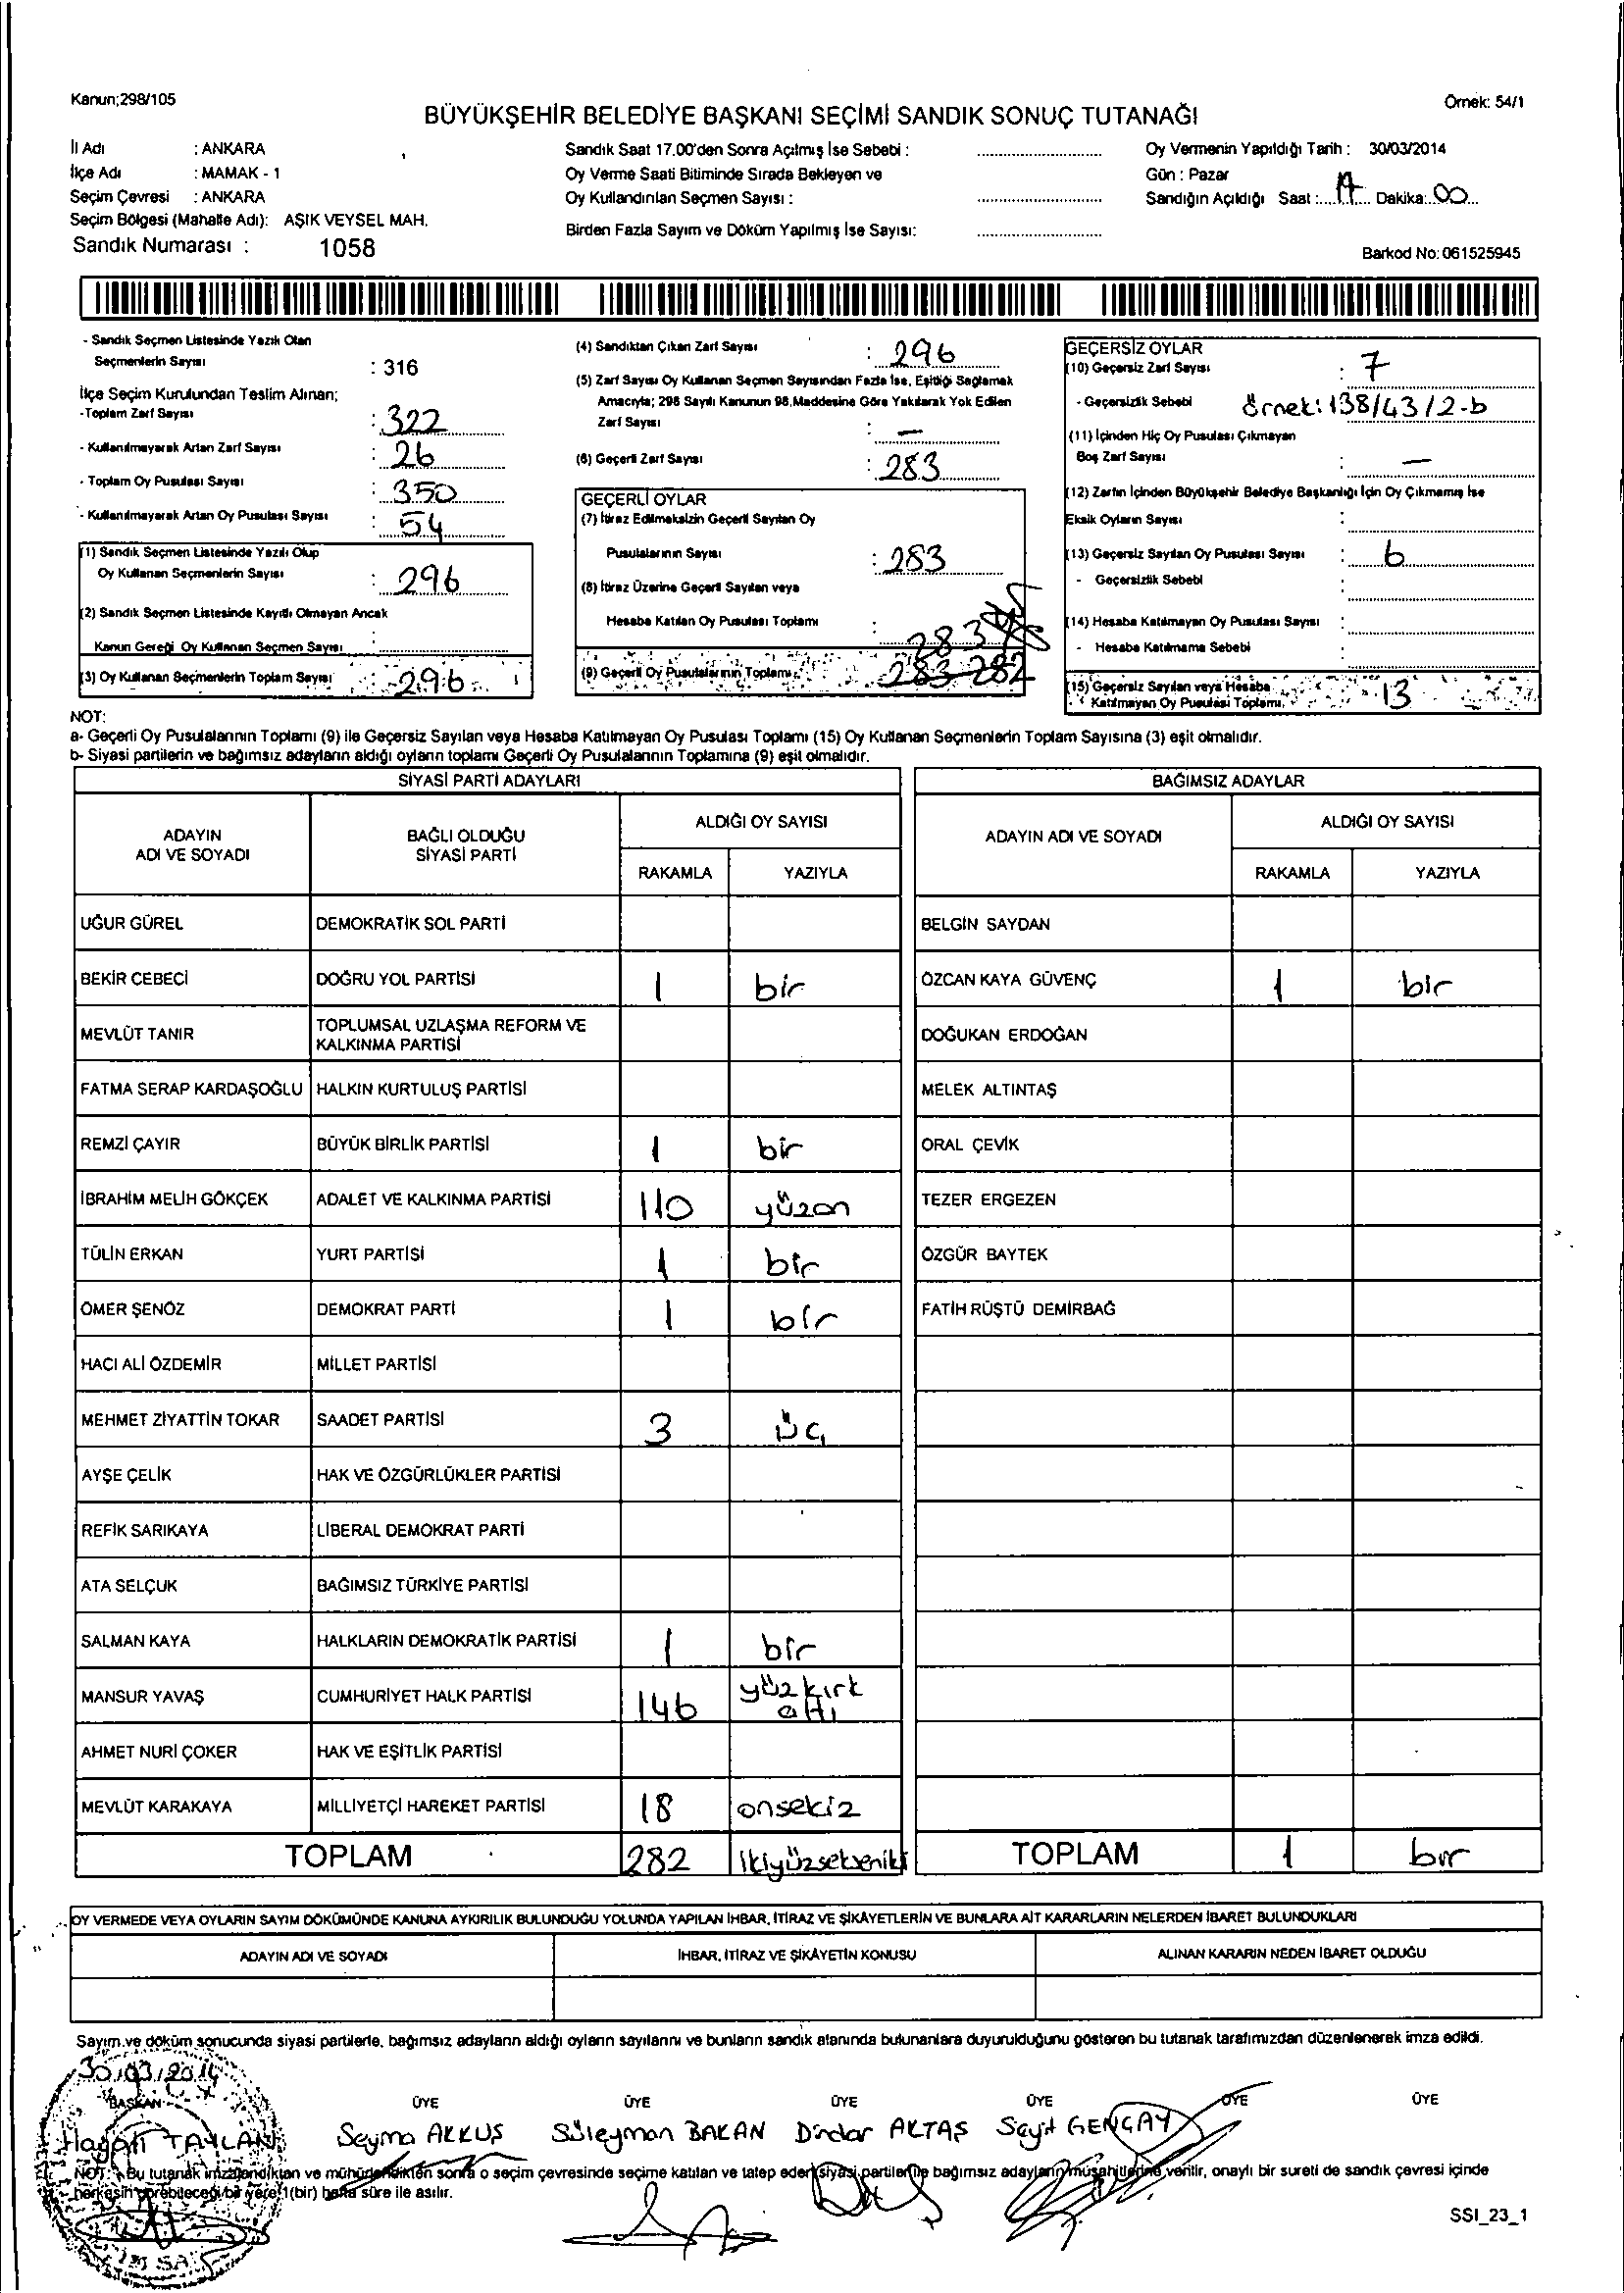 Kanun;298/105
Örnek: 54/1
BÜYÜKŞEHİR BELEDİYE BAŞKANI SEÇİMİ SANDIK SONUÇ TUTANAĞI
İl Adı : ANKARA
İlçe Adı : MAMAK - 1
Seçim Çevresi : ANKARA
Seçim Bölgesi (Mahalle Adı): AŞIK VEYSEL MAH.
Sandık Numarası : 1058
Sandık Saat 17.00'den Sonra Açılmış İse Sebebi :
Oy Verme Saati Bitiminde Sırada Bekleyen ve
Oy Kullandırılan Seçmen Sayısı :
Birden Fazla Sayım ve Döküm Yapılmış İse Sayısı:
Oy Vermenin Yapıldığı Tarih : 30/03/2014
Gün : Pazar
Sandığın Açıldığı Saat : 17 Dakika: 00
Barkod No: 061525945
- Sandık Seçmen Listesinde Yazılı Olan
Seçmenlerin Sayısı : 316
İlçe Seçim Kurulundan Teslim Alınan;
-Toplam Zarf Sayısı : 322
- Kullanılmayarak Artan Zarf Sayısı : 26
- Toplam Oy Pusulası Sayısı : 350
- Kullanılmayarak Artan Oy Pusulası Sayısı : 54
(1) Sandık Seçmen Listesinde Yazılı Olup
Oy Kullanan Seçmenlerin Sayısı : 296
(2) Sandık Seçmen Listesinde Kayıtlı Olmayan Ancak
Kanun Gereği Oy Kullanan Seçmen Sayısı :
(3) Oy Kullanan Seçmenlerin Toplam Sayısı : 296
(4) Sandıktan Çıkan Zarf Sayısı : 296
(5) Zarf Sayısı Oy Kullanan Seçmen Sayısından Fazla İse, Eşitliği Sağlamak
Amacıyla; 298 Sayılı Kanunun 98.Maddesine Göre Yakılarak Yok Edilen
Zarf Sayısı : —
(6) Geçerli Zarf Sayısı : 283
GEÇERLİ OYLAR
(7) İtiraz Edilmeksizin Geçerli Sayılan Oy
Pusulalarının Sayısı : 283
(8) İtiraz Üzerine Geçerli Sayılan veya
Hesaba Katılan Oy Pusulası Toplamı :
283
(9) Geçerli Oy Pusulalarının Toplamı : 283 282
GEÇERSİZ OYLAR
(10) Geçersiz Zarf Sayısı : 7
- Geçersizlik Sebebi Örnek: 138/43/2-b
(11) İçinden Hiç Oy Pusulası Çıkmayan
Boş Zarf Sayısı : —
(12) Zarfın İçinden Büyükşehir Belediye Başkanlığı İçin Oy Çıkmamış İse
Eksik Oyların Sayısı :
(13) Geçersiz Sayılan Oy Pusulası Sayısı : 6
- Geçersizlik Sebebi :
(14) Hesaba Katılmayan Oy Pusulası Sayısı :
- Hesaba Katılmama Sebebi :
(15) Geçersiz Sayılan veya Hesaba
Katılmayan Oy Pusulası Toplamı. : 13
NOT:
a- Geçerli Oy Pusulalarının Toplamı (9) ile Geçersiz Sayılan veya Hesaba Katılmayan Oy Pusulası Toplamı (15) Oy Kullanan Seçmenlerin Toplam Sayısına (3) eşit olmalıdır.
b- Siyasi partilerin ve bağımsız adayların aldığı oyların toplamı Geçerli Oy Pusulalarının Toplamına (9) eşit olmalıdır.
SİYASİ PARTİ ADAYLARI
ADAYIN ADI VE SOYADI
BAĞLI OLDUĞU SİYASİ PARTİ
ALDIĞI OY SAYISI
RAKAMLA YAZIYLA
UĞUR GÜREL DEMOKRATİK SOL PARTİ
BEKİR CEBECİ DOĞRU YOL PARTİSİ 1 bir
MEVLÜT TANIR TOPLUMSAL UZLAŞMA REFORM VE
KALKINMA PARTİSİ
FATMA SERAP KARDAŞOĞLU HALKIN KURTULUŞ PARTİSİ
REMZİ ÇAYIR BÜYÜK BİRLİK PARTİSİ 1 bir
İBRAHİM MELİH GÖKÇEK ADALET VE KALKINMA PARTİSİ 110 yüzon
TÜLİN ERKAN YURT PARTİSİ 1 bir
ÖMER ŞENÖZ DEMOKRAT PARTİ 1 bir
HACI ALİ ÖZDEMİR MİLLET PARTİSİ
MEHMET ZİYATTİN TOKAR SAADET PARTİSİ 3 üç
AYŞE ÇELİK HAK VE ÖZGÜRLÜKLER PARTİSİ
REFİK SARIKAYA LİBERAL DEMOKRAT PARTİ
ATA SELÇUK BAĞIMSIZ TÜRKİYE PARTİSİ
SALMAN KAYA HALKLARIN DEMOKRATİK PARTİSİ 1 bir
MANSUR YAVAŞ CUMHURİYET HALK PARTİSİ 146 yüzkırk
altı
AHMET NURİ ÇOKER HAK VE EŞİTLİK PARTİSİ
MEVLÜT KARAKAYA MİLLİYETÇİ HAREKET PARTİSİ 18 onsekiz
TOPLAM 282 ikiyüzsekseniki
BAĞIMSIZ ADAYLAR
ADAYIN ADI VE SOYADI
ALDIĞI OY SAYISI
RAKAMLA YAZIYLA
BELGİN SAYDAN
ÖZCAN KAYA GÜVENÇ 1 bir
DOĞUKAN ERDOĞAN
MELEK ALTINTAŞ
ORAL ÇEVİK
TEZER ERGEZEN
ÖZGÜR BAYTEK
FATİH RÜŞTÜ DEMİRBAĞ
TOPLAM 1 bir
OY VERMEDE VEYA OYLARIN SAYIM DÖKÜMÜNDE KANUNA AYKIRILIK BULUNDUĞU YOLUNDA YAPILAN İHBAR, İTİRAZ VE ŞİKÂYETLERİN VE BUNLARA AİT KARARLARIN NELERDEN İBARET BULUNDUKLARI
ADAYIN ADI VE SOYADI İHBAR, İTİRAZ VE ŞİKÂYETİN KONUSU ALINAN KARARIN NEDEN İBARET OLDUĞU
Sayım ve döküm sonucunda siyasi partilerle, bağımsız adayların aldığı oyların sayılarını ve bunların sandık alanında bulunanlara duyurulduğunu gösteren bu tutanak tarafımızdan düzenlenerek imza edildi.
30/03/2014
BAŞKAN ÜYE ÜYE ÜYE ÜYE ÜYE ÜYE
TAYLAN Seyma AKKUŞ Süleyman BAKAN Dindar AKTAŞ Seyit GENÇAY
NOT: Bu tutanak imzalandıktan ve mühürlendikten sonra o seçim çevresinde seçime katılan ve talep eden siyasi partiler ile bağımsız adayların müşahitlerine verilir, onaylı bir sureti de sandık çevresi içinde
herkesin görebileceği bir yere 1(bir) hafta süre ile asılır.
SSI_23_1